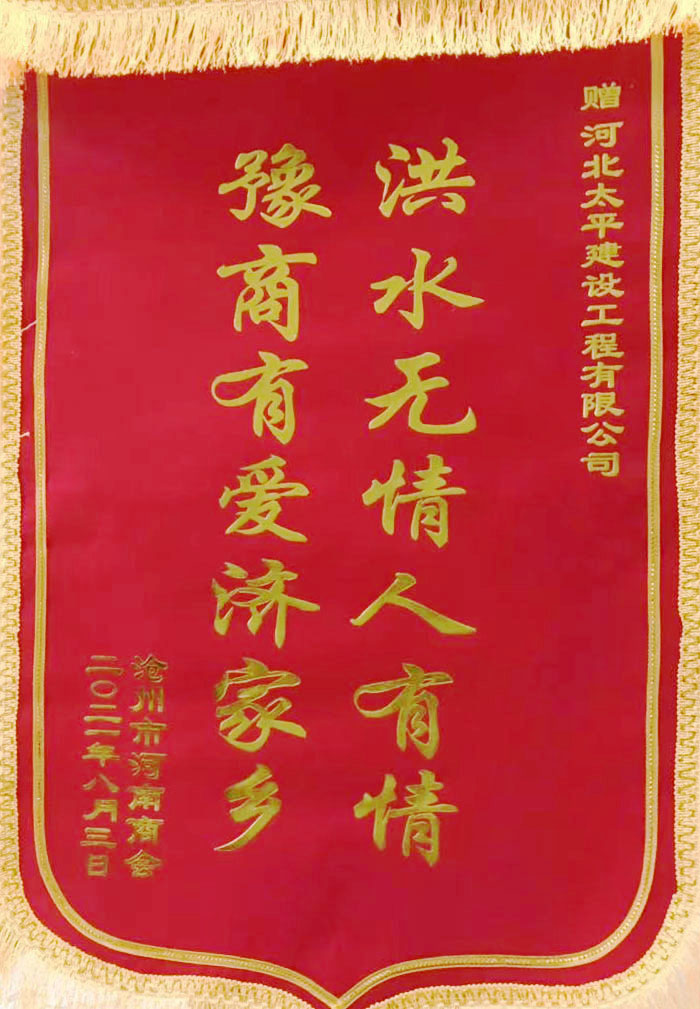 赠 河北太平建设工程有限公司
洪水无情人有情
豫商有爱济家乡
沧州市河南商会
二〇二一年八月三日